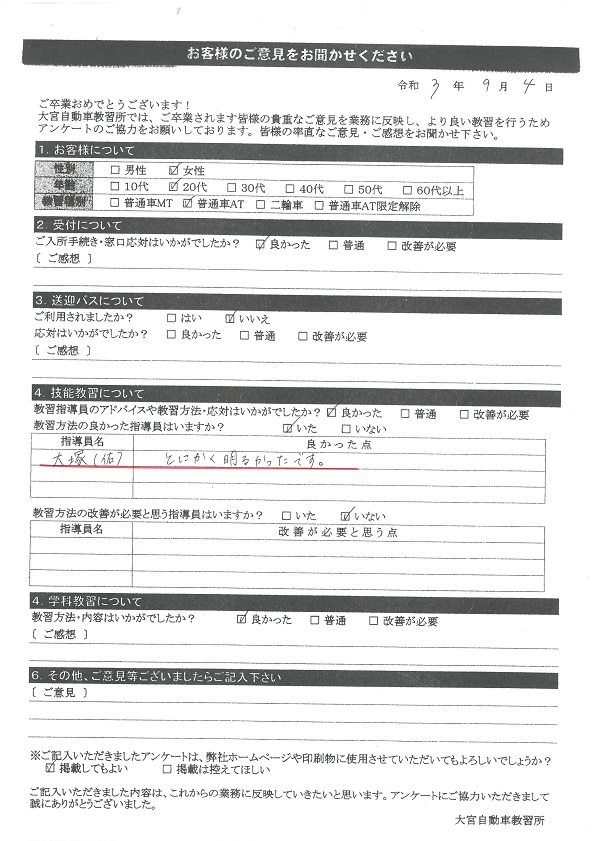 お客様のご意見をお聞かせください
令和 3 年 9 月 4 日
ご卒業おめでとうございます！
大宮自動車教習所では、ご卒業されます皆様の貴重なご意見を業務に反映し、より良い教習を行うため
アンケートのご協力をお願いしております。皆様の率直なご意見・ご感想をお聞かせ下さい。
1. お客様について
性別 □ 男性 ☑ 女性
年齢 □ 10代 ☑ 20代 □ 30代 □ 40代 □ 50代 □ 60代以上
教習種別 □ 普通車MT ☑ 普通車AT □ 二輪車 □ 普通車AT限定解除
2. 受付について
ご入所手続き・窓口応対はいかがでしたか？ ☑ 良かった □ 普通 □ 改善が必要
〔 ご感想 〕
3. 送迎バスについて
ご利用されましたか？ □ はい ☑ いいえ
応対はいかがでしたか？ □ 良かった □ 普通 □ 改善が必要
〔 ご感想 〕
4. 技能教習について
教習指導員のアドバイスや教習方法・応対はいかがでしたか？ ☑ 良かった □ 普通 □ 改善が必要
教習方法の良かった指導員はいますか？ ☑ いた □ いない
指導員名 良かった点
大塚(佑) とにかく明るかったです。
教習方法の改善が必要と思う指導員はいますか？ □ いた ☑ いない
指導員名 改善が必要と思う点
4. 学科教習について
教習方法・内容はいかがでしたか？ ☑ 良かった □ 普通 □ 改善が必要
〔 ご感想 〕
6. その他、ご意見等ございましたらご記入下さい
〔 ご意見 〕
※ご記入いただきましたアンケートは、弊社ホームページや印刷物に使用させていただいてもよろしいでしょうか？
☑ 掲載してもよい □ 掲載は控えてほしい
ご記入いただきました内容は、これからの業務に反映していきたいと思います。アンケートにご協力いただきまして
誠にありがとうございました。
大宮自動車教習所